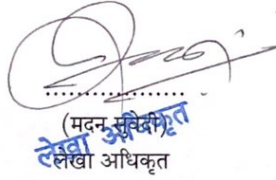 ....................
(मदन सुवेदी)
लेखा अधिकृत
लेखा अधिकृत